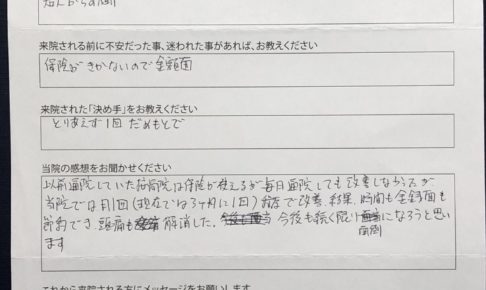 知人からの
来院される前に不安だった事、迷われた事があれば、お教えください
保険がきかないので金額面
来院された「決め手」をお教えください
とりあえず1回 だめもとで
当院の感想をお聞かせください
以前通院していた 院は保険が使えるが毎日通院しても改善しなかったが
当院では月1回(現在では3ヶ月に1回) 程で改善、結果、時間も金銭面も
節約でき、頭痛も 解消した。 今後も続く限り 面倒 になろうと思い
ます
これから来院される方にメッセージをお願いします